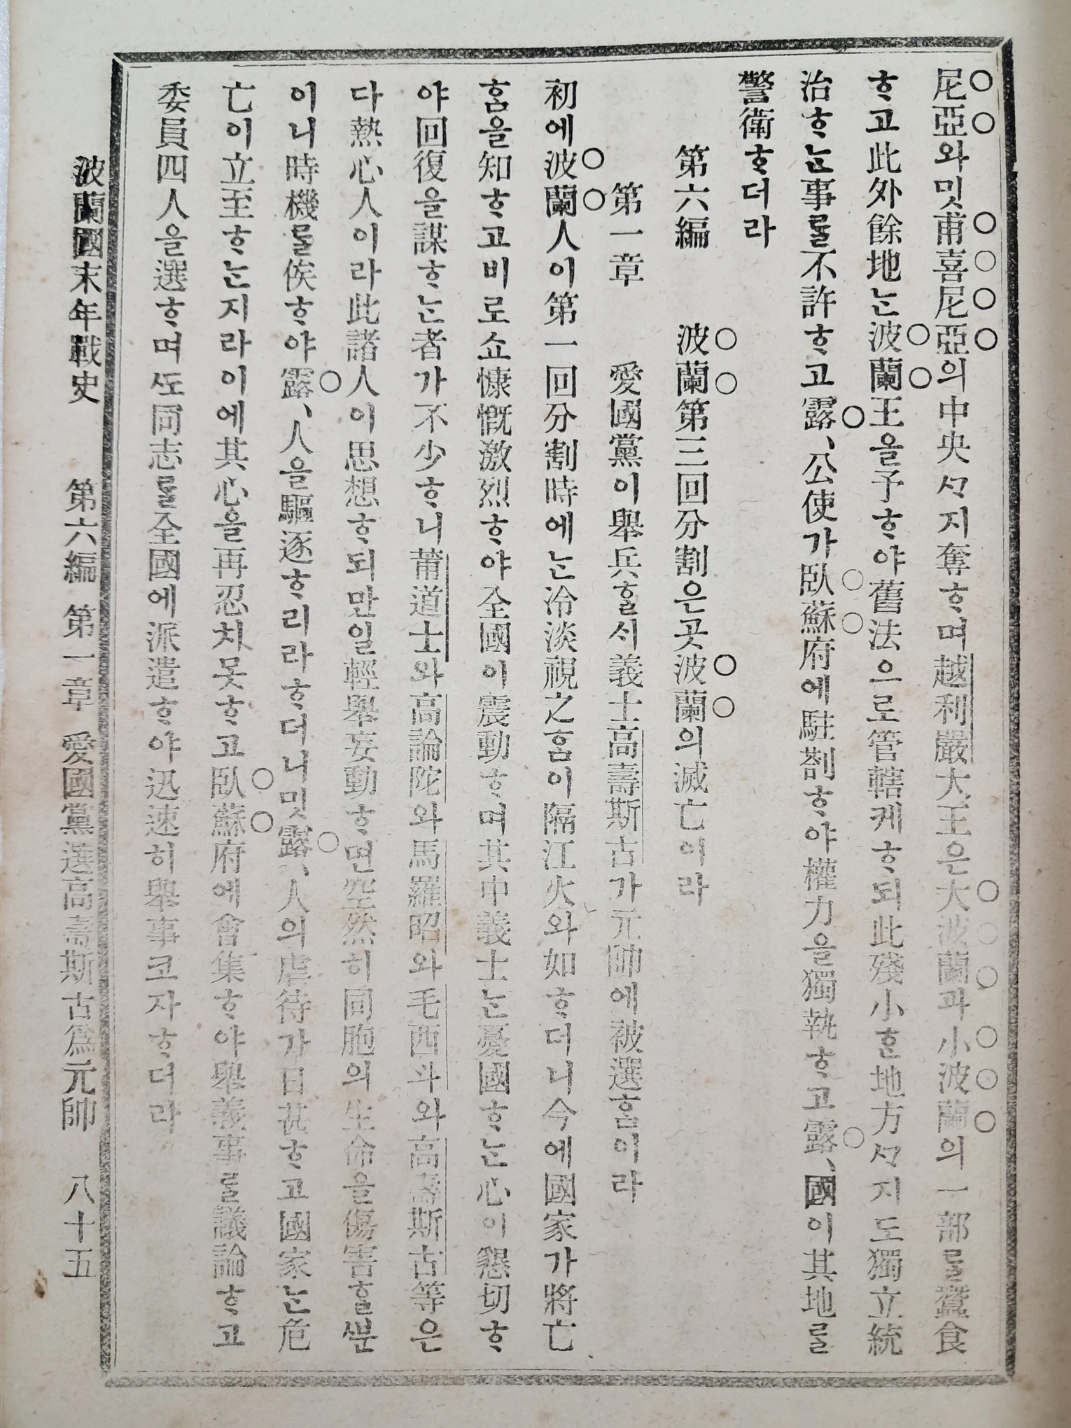 尼亞와밋甫喜尼亞의中央ᄭᆞ지奪ᄒᆞ며越利嚴大王은大波蘭과小波蘭의一部를蠶食
ᄒᆞ고此外餘地ᄂᆞᆫ波蘭王을予ᄒᆞ야舊法으로管轄케ᄒᆞ되此殘小ᄒᆞᆫ地方ᄭᆞ지도獨立統
治ᄒᆞᄂᆞᆫ事ᄅᆞᆯ不許ᄒᆞ고露、公使가臥蘇府에駐劄ᄒᆞ야權力을獨執ᄒᆞ고露、國이其地ᄅᆞᆯ
警衛ᄒᆞ더라
第六編　波蘭第三回分割은곳波蘭의滅亡이라
第一章　愛國黨이擧兵ᄒᆞᆯᄉᆡ義士高壽斯古가元帥에被選ᄒᆞᆷ이라
初에波蘭人이第一回分割時에ᄂᆞᆫ冷淡視之ᄒᆞᆷ이隔江火와如ᄒᆞ더니今에國家가將亡
ᄒᆞᆷ을知ᄒᆞ고비로쇼慷慨激烈ᄒᆞ야全國이震動ᄒᆞ며其中義士ᄂᆞᆫ憂國ᄒᆞᄂᆞᆫ心이懇切ᄒᆞ
야回復을謀ᄒᆞᄂᆞᆫ者가不少ᄒᆞ니莆道士와高論陀와馬羅昭와毛西斗와高壽斯古等은
다熱心人이라此諸人이思想ᄒᆞ되만일輕擧妄動ᄒᆞ면空然히同胞의生命을傷害ᄒᆞᆯᄲᅮᆫ
이니時機ᄅᆞᆯ俟ᄒᆞ야露、人을驅逐ᄒᆞ리라ᄒᆞ더니밋露、人의虐待가日甚ᄒᆞ고國家ᄂᆞᆫ危
亡이立至ᄒᆞᄂᆞᆫ지라이에其心을再忍치못ᄒᆞ고臥蘇府에會集ᄒᆞ야擧義事ᄅᆞᆯ議論ᄒᆞ고
委員四人을選ᄒᆞ며ᄯᅩ同志ᄅᆞᆯ全國에派遣ᄒᆞ야迅速히擧事코자ᄒᆞ더라
波蘭國末年戰史　第六編　第一章　愛國黨選高壽斯古爲元帥　八十五